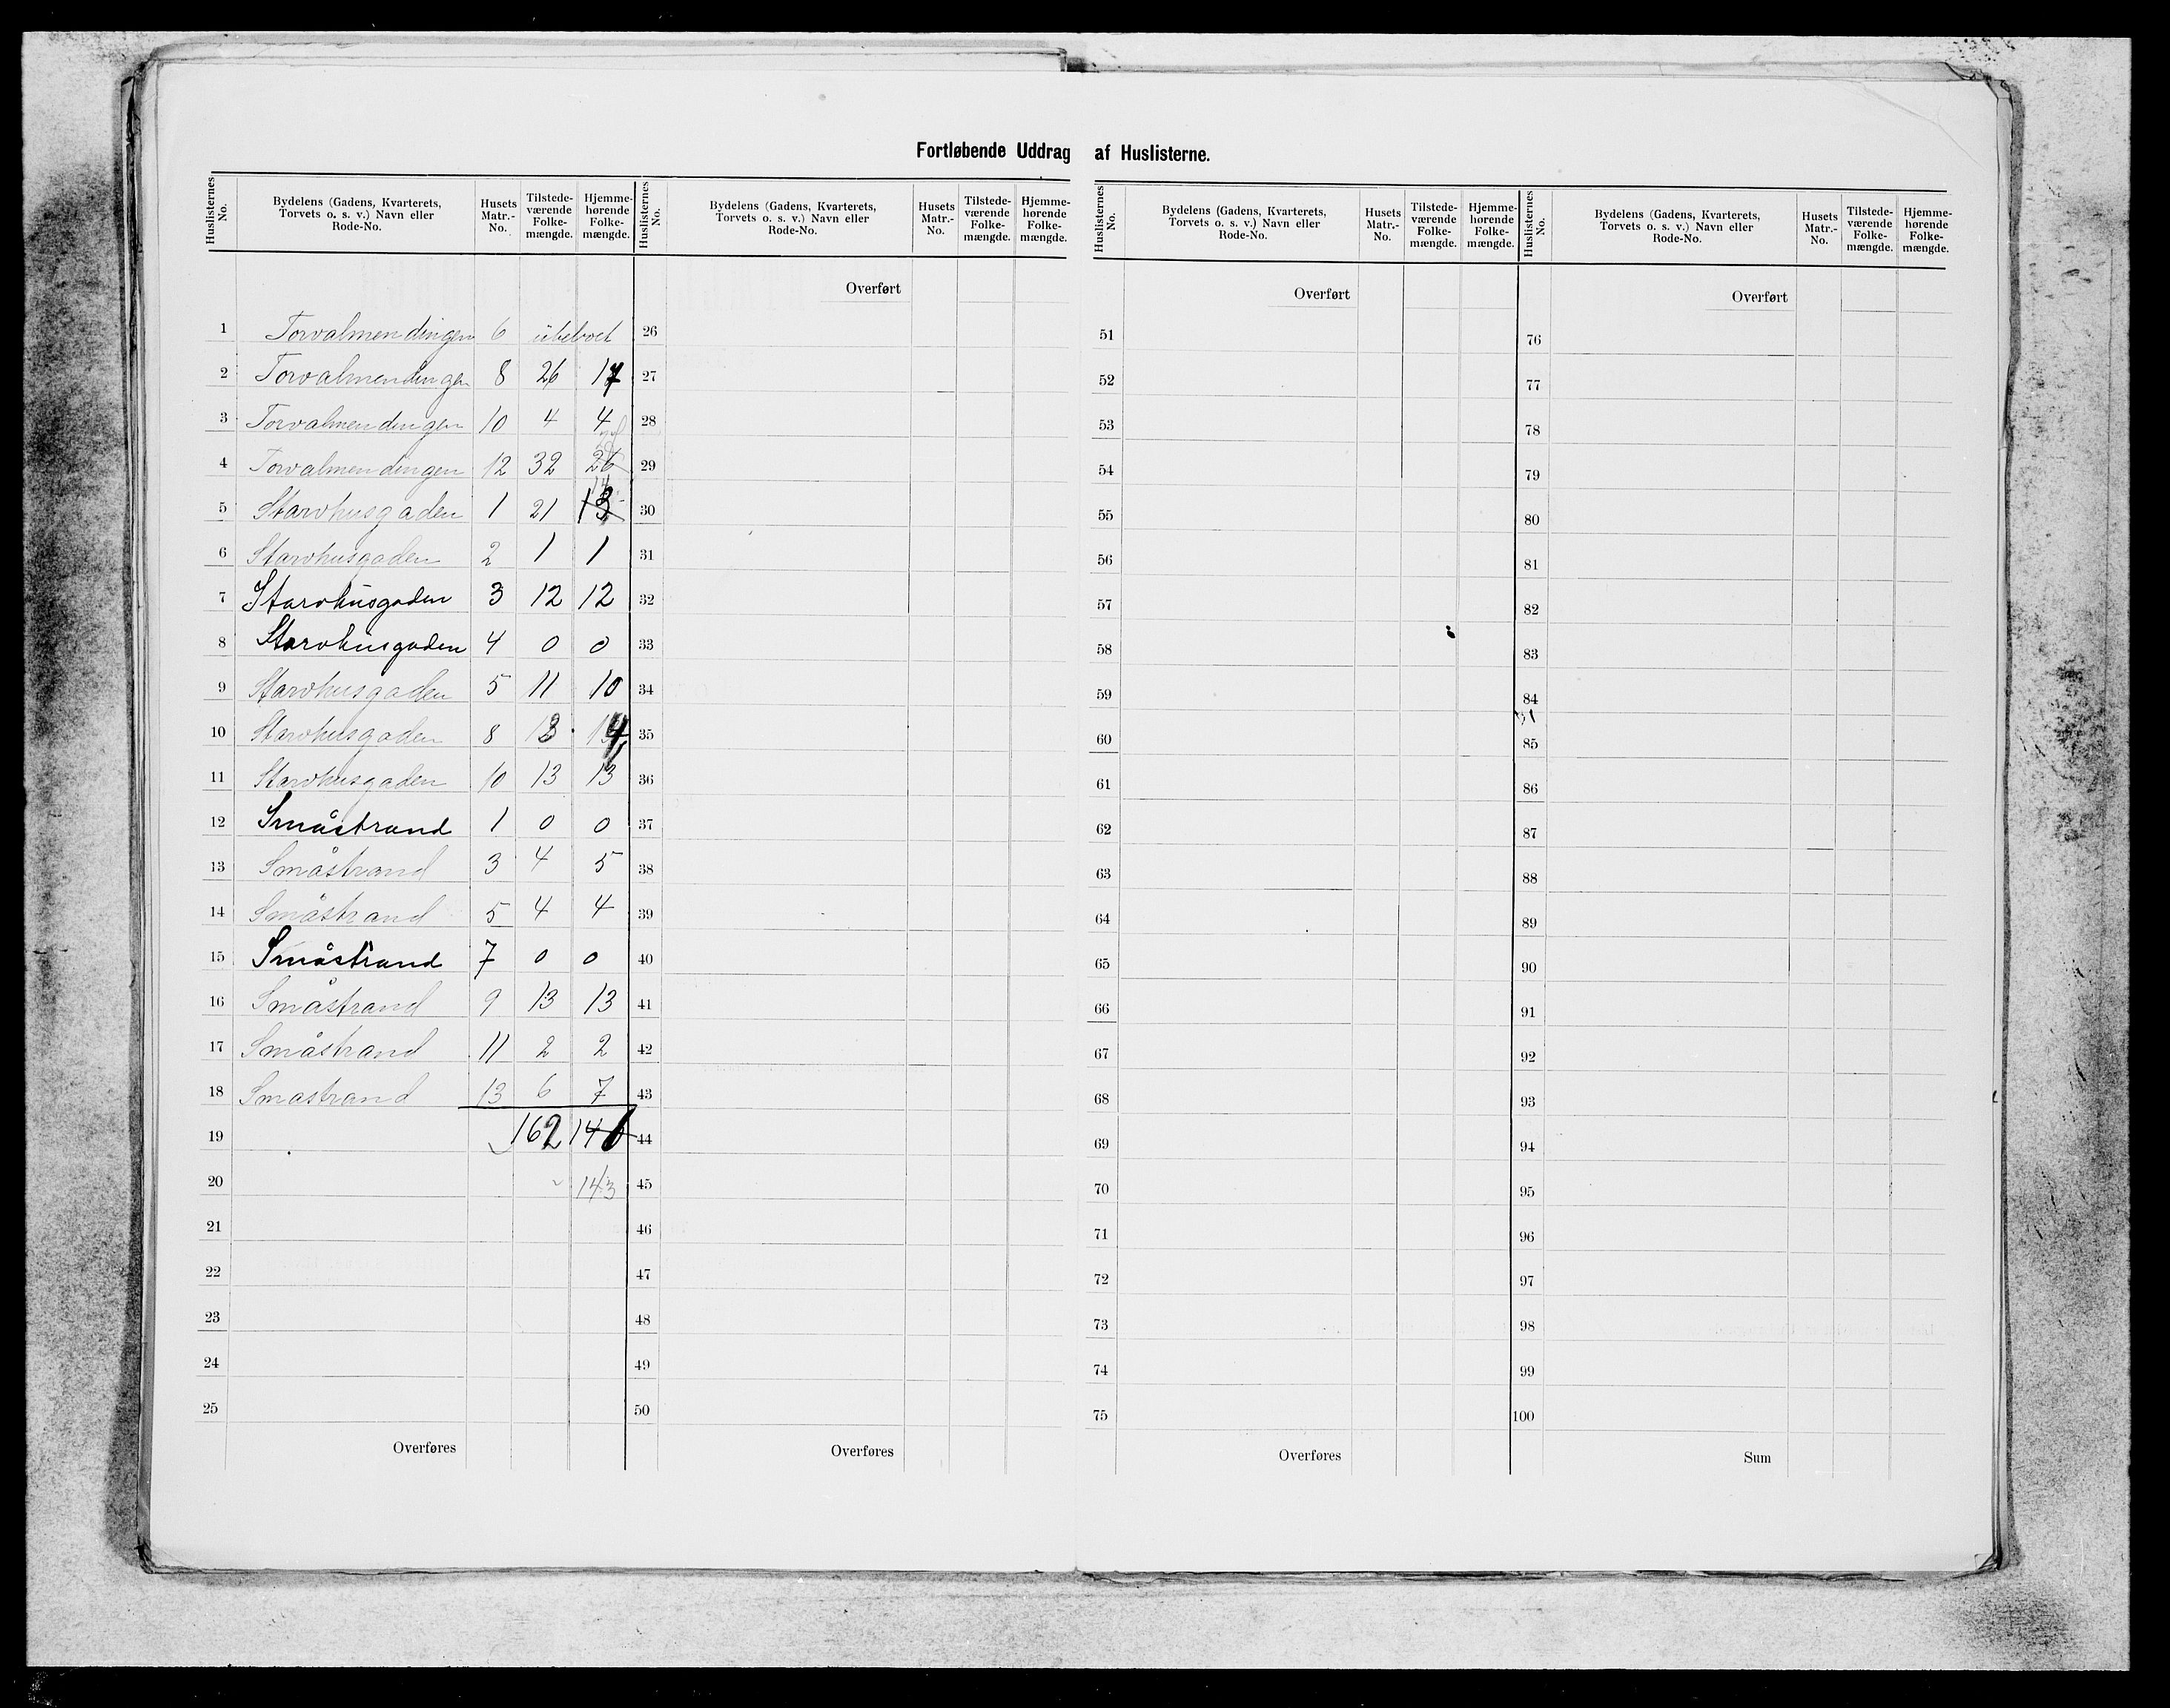 Fortløbende Uddrag af Huslisterne.
Huslisternes No. Bydelens (Gadens, Kvarterets, Torvets o. s. v.) Navn eller Rode-No. Husets Matr.-No. Tilstede-værende Folke-mængde. Hjemme-hørende Folke-mængde.
1 Torvalmendingen 6 übeboet
2 Torvalmendingen 8 26 17
3 Torvalmendingen 10 4 4
4 Torvalmendingen 12 32 26
5 Starvhusgaden 1 21 13
6 Starvhusgaden 2 1 1
7 Starvhusgaden 3 12 12
8 Starvhusgaden 4 0 0
9 Starvhusgaden 5 11 10
10 Starvhusgaden 8 13 14
11 Starvhusgaden 10 13 13
12 Småstrand 1 0 0
13 Småstrand 3 4 5
14 Småstrand 5 4 4
15 Småstrand 7 0 0
16 Småstrand 9 13 13
17 Småstrand 11 2 2
18 Smastrand 13 6 7
19 162 141
20 143
21
22
23
24
25
Overføres
Huslisternes No. Bydelens (Gadens, Kvarterets, Torvets o. s. v.) Navn eller Rode-No. Husets Matr.-No. Tilstede-værende Folke-mængde. Hjemme-hørende Folke-mængde.
Overført
26
27
28
29
30
31
32
33
34
35
36
37
38
39
40
41
42
43
44
45
46
47
48
49
50
Overføres
Huslisternes No. Bydelens (Gadens, Kvarterets, Torvets o. s. v.) Navn eller Rode-No. Husets Matr.-No. Tilstede-værende Folke-mængde. Hjemme-hørende Folke-mængde.
Overført
51
52
53
54
55
56
57
58
59
60
61
62
63
64
65
66
67
68
69
70
71
72
73
74
75
Overføres
Huslisternes No. Bydelens (Gadens, Kvarterets, Torvets o. s. v.) Navn eller Rode-No. Husets Matr.-No. Tilstede-værende Folke-mængde. Hjemme-hørende Folke-mængde.
Overført
76
77
78
79
80
81
82
83
84
85
86
87
88
89
90
91
92
93
94
95
96
97
98
99
100
Sum